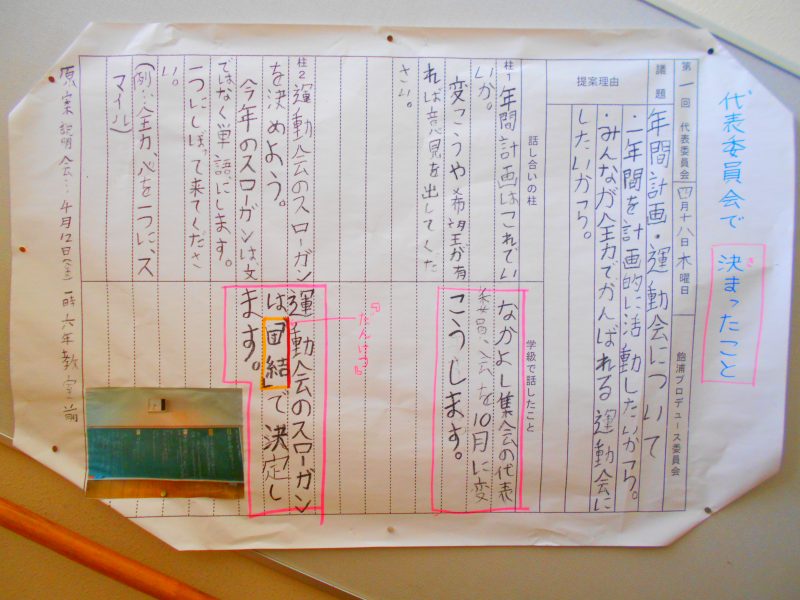 代表委員会で 決まったこと
き
第一回 代表委員会 四月十八日 木曜日 飽浦プロデュース委員会
議題 年間計画・運動会について
提案理由 ・一年間を計画的に活動したいから。
・みんなが全力でがんばれる運動会に
したいから。
話し合いの柱 学級で話したこと
柱1 年間計画はこれでい
いか。
変こうや希望が有
れば意見を出してくた
さい。
なかよし集会の代表
委員会を10月に変
こうします。
柱2 運動会のスローガン
を決めよう。
今年のスローガンは文
ではなく単語にします。
一つにしぼって来てくださ
い。
(例…全力、心を一つに、ス
マイル)
『だんけつ』
運動会のスローガン
は「団結」で決定し
ます。
原案説明会…4月12日(金)一時六年教室前